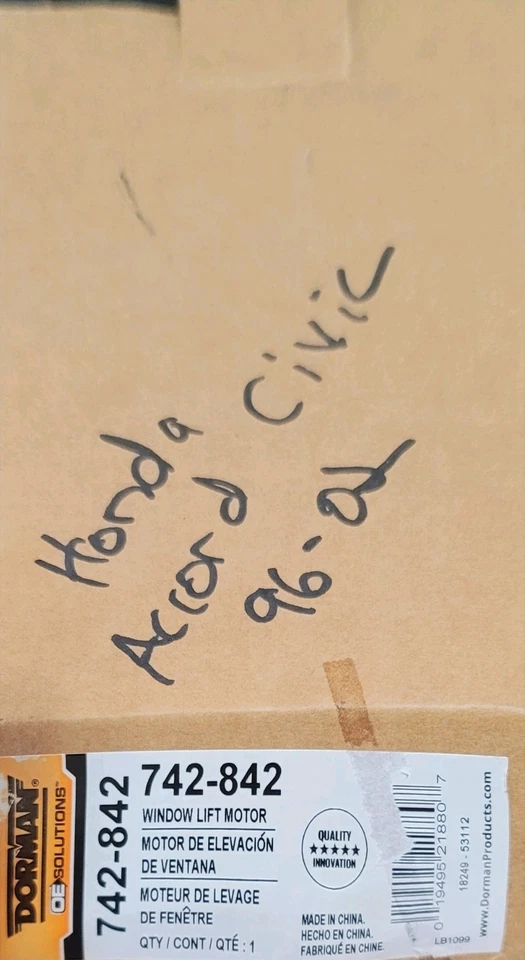 Honda
Accord Civic
96-02
DORMAN®
OE SOLUTIONS™
742-842
742-842
WINDOW LIFT MOTOR
MOTOR DE ELEVACIÓN
DE VENTANA
MOTEUR DE LEVAGE
DE FENÊTRE
QTY / CONT / QTÉ : 1
QUALITY
★★★★★
INNOVATION
MADE IN CHINA.
HECHO EN CHINA.
FABRIQUÉ EN CHINE.
0 19495 21880 7
18249 - 53112
LB1099
www.DormanProducts.com